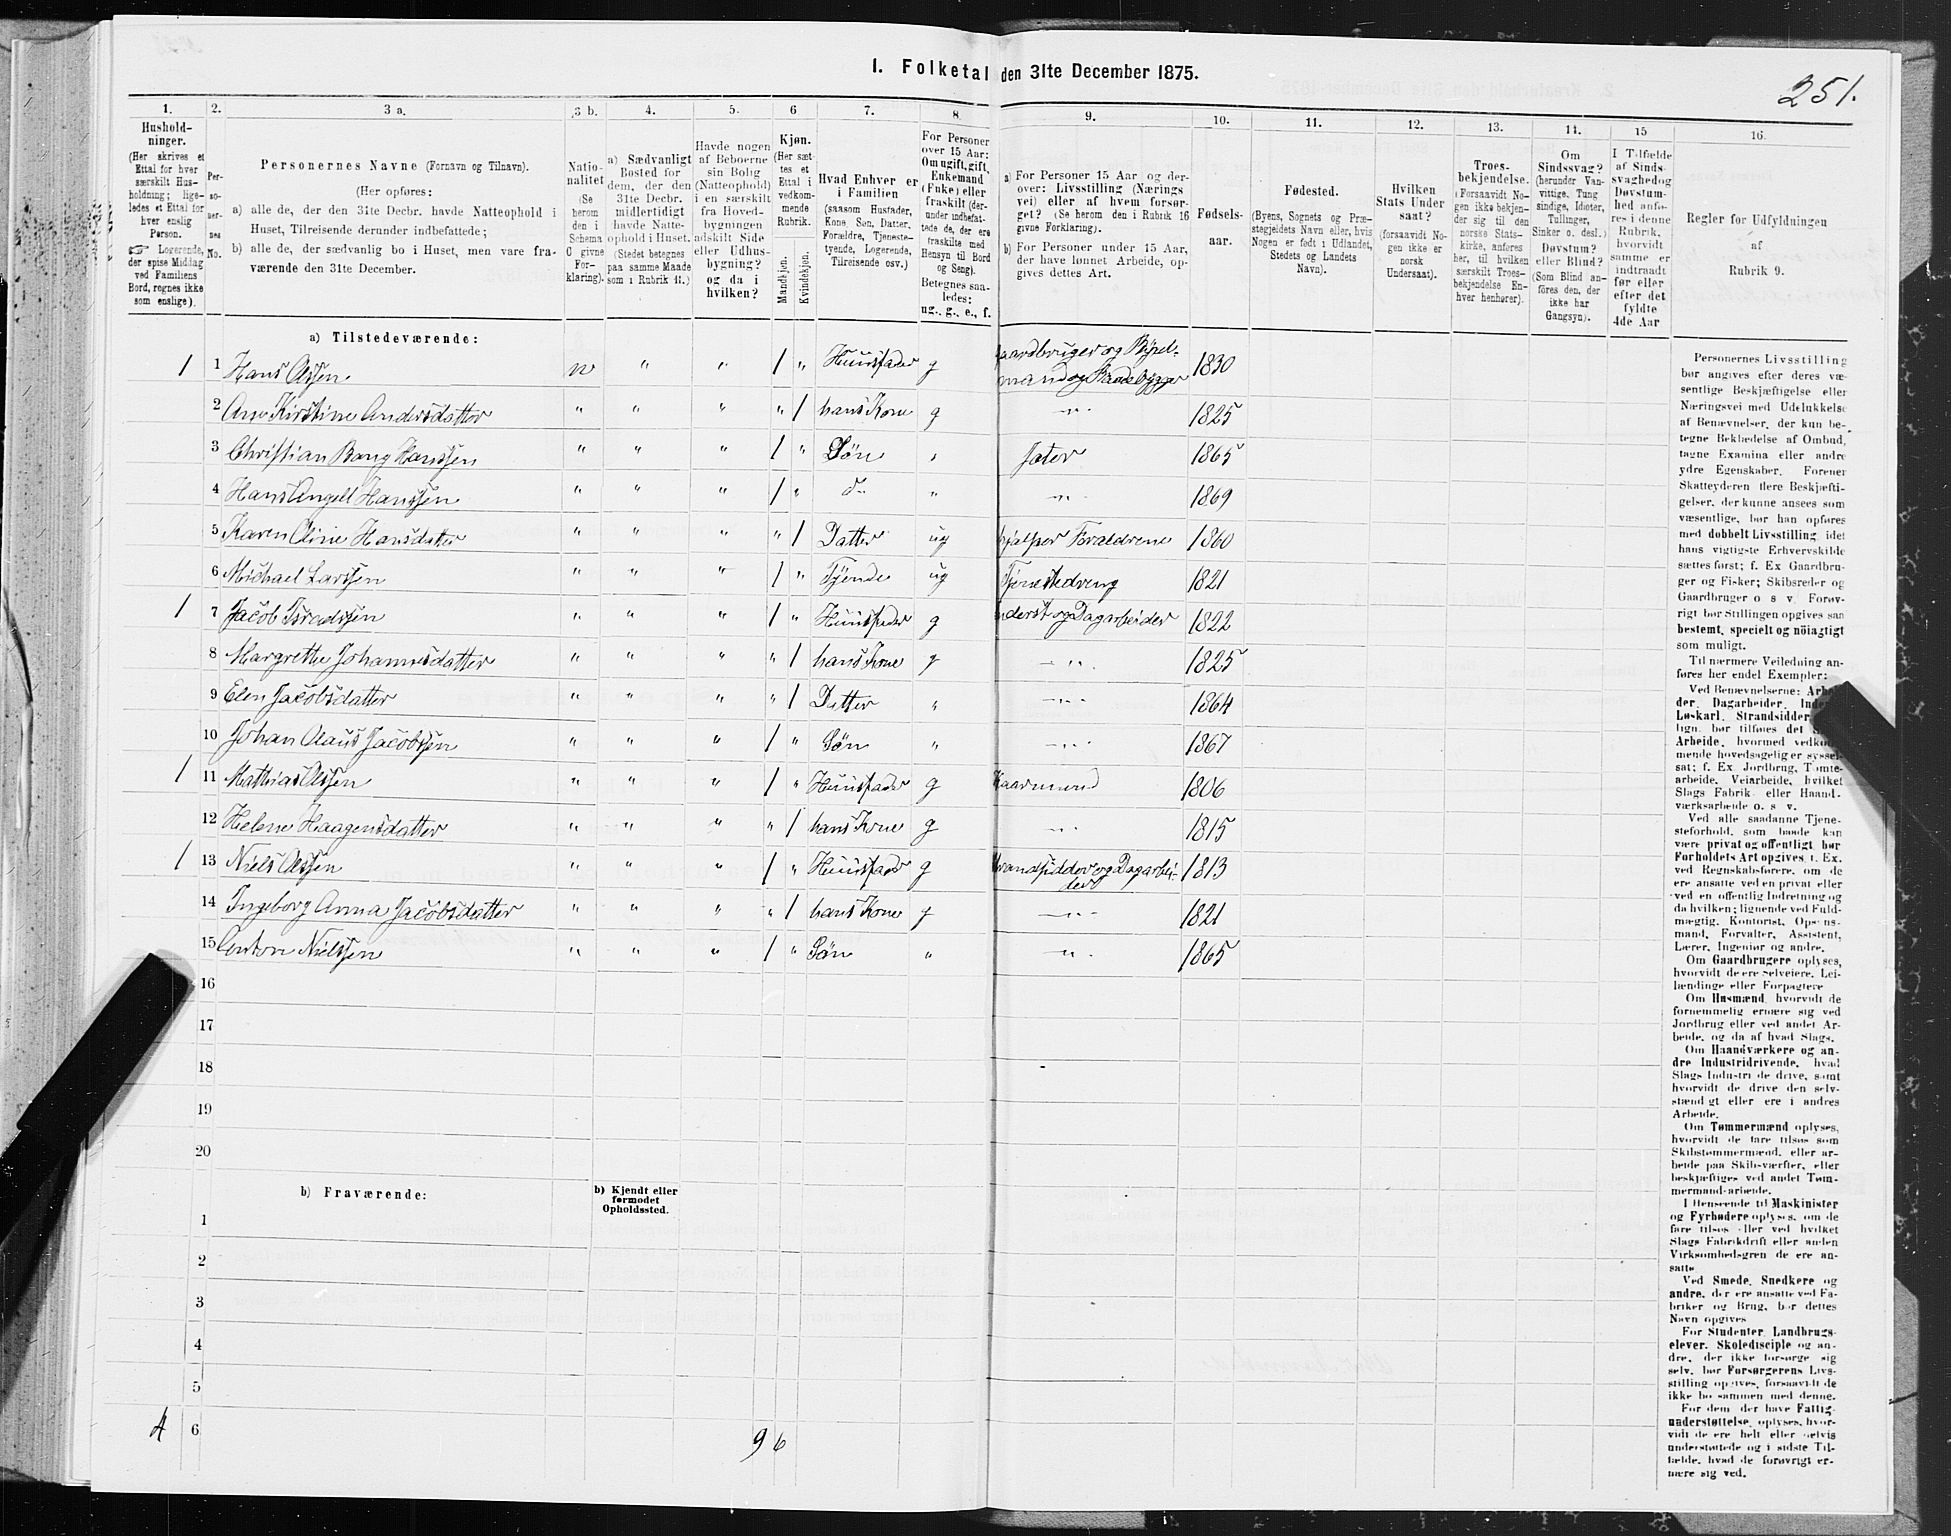 I. Folketal den 31te December 1875.
251.
1.
2.
3 a.
3 b.
4.
5.
6
7.
8.
9.
10.
11.
12.
13.
14.
15
16.
Hushold-
ninger.
(Her skrives et
Ettal for hver
særskilt Hus-
holdning; lige-
ledes et Ettal for
hver enslig
Person.
☞ Logerende,
der spise Middag
ved Familiens
Bord, regnes ikke
som enslige).
Per-
so-
ner-
nes
No.
Personernes Navne (Fornavn og Tilnavn).
(Her opføres:
a) alle de, der den 31te Decbr. havde Natteophold i
Huset, Tilreisende derunder indbefattede;
b) alle de, der sædvanlig bo i Huset, men vare fra-
værende den 31te December.
Natio-
nalitet
(Se
herom
den i
Schema
C givne
For-
klaring).
a) Sædvanligt
Bosted for
dem, der den
31te Decbr.
midlertidigt
havde Natte-
ophold i Huset.
(Stedet betegnes
paa samme Maade
som i Rubrik 11.)
Havde nogen
af Beboerne
sin Bolig
(Natteophold)
i en særskilt
fra Hoved-
bygningen
adskilt Side
eller Udhus-
bygning?
og da i
hvilken?
Kjøn.
(Her sæt-
tes et
Ettal i
vedkom-
mende
Rubrik.
Mandkjøn.
Kvindekjøn.
Hvad Enhver er
i Familien
(saasom Husfader,
Kone, Søn, Datter,
Forældre, Tjeneste-
tyende, Logerende,
Tilreisende osv.)
For Personer
over 15 Aar:
Om ugift, gift,
Enkemand
(Enke) eller
fraskilt (der-
under indbefat-
tede de, der ere
fraskilte med
Hensyn til Bord
og Seng).
Betegnes saa-
ledes:
ug., g., e., f.
a) For Personer 15 Aar og der-
over: Livsstilling (Nærings
vei) eller af hvem forsør-
get? (Se herom den i Rubrik 16
givne Forklaring).
b) For Personer under 15 Aar,
der have lønnet Arbeide, op-
gives dettes Art.
Fødsels-
aar.
Fødested.
(Byens, Sognets og Præ-
stegjeldets Navn eller, hvis
Nogen er født i Udlandet,
Stedets og Landets
Navn).
Hvilken
Stats Under
saat?
(forsaavidt No-
gen ikke er
norsk
Undersaat).
Troes-
bekjendelse.
(Forsaavidt No-
gen ikke bekjen-
der sig til den
norske Stats-
kirke, anføres
her, til hvilken
særskilt Troes-
bekjendelse En-
hver henhører).
Om
Sindssvag?
(herunder Van-
vittige, Tung
sindige, Idioter,
Tullinger,
Sinker o. desl.)
Døvstum?
eller Blind?
(Som Blind an-
føres den, der
ikke har
Gangsyn).
I Tilfælde
af Sinds-
svaghed og
Døvstum-
hed anfø-
res i denne
Rubrik,
hvorvidt
samme er
indtraadt
før eller
efter det
fyldte
4de Aar
Regler for Udfyldningen
af
Rubrik 9.
a) Tilstedeværende:
1 1 Hans Olssen n " " 1 " Huusfader g Gaardbruger og Bøxel-
mand og Baadebygger 1830
2 Ane Kirstine Andersdatter " " " " 1 hans Kone g -"- 1825
3 Christian Bang Hanssen " " " 1 " Søn " Jæter 1865
4 Hans Angell Hanssen " " " 1 " do " -"- 1869
5 Karen Oline Hansdatter " " " " 1 Datter ug hjælper Forældrene 1860
6 Michael Larssen " " " 1 " Tjende ug Tjenestedreng 1821
1 7 Jacob Israelssen " " " 1 " Huusfader g Inderst og Dagarbeider 1822
8 Margrethe Johannesdatter " " " " 1 hans Kone g -"- 1825
9 Elen Jacobsdatter " " " " 1 Datter " -"- 1864
10 Johan Olaus Jacobssen " " " 1 " Søn " -"- 1867
1 11 Mathias Olssen " " " 1 " Huusfader g Kaarmand 1806
12 Helene Haagensdatter " " " " 1 hans Kone g -"- 1815
1 13 Niels Olssen " " " 1 " Huusfader g Strandsidder og Dagarbei-
der 1813
14 Ingeborg Anna Jacobsdatter " " " " 1 hans Kone g -"- 1821
15 Anton Nielssen " " " 1 " Søn " -"- 1865
16
17
18
19
20
b) Fraværende:
b) Kjendt eller
formodet
Opholdssted.
1
2
3
4
5
4 6 9 6
Personernes Livsstilling
bør angives efter deres væ-
sentlige Beskjæftigelse eller
Næringsvei med Udelukkelse
af Benævnelser, der kun be-
tegne Beklædelse af Ombud,
tagne Examina eller andre
ydre Egenskaber. Forener
Skatteyderen flere Beskjæfti-
gelser, der kunne ansees som
væsentlige, bør han opføres
med dobbelt Livsstilling, idet
hans vigtigste Erhvervskilde
sættes først; f. Ex Gaardbru-
ger og Fisker; Skibsreder og
Gaardbruger o s v. Forøv-
rigt bør Stillingen opgives saa
bestemt, specielt og nöiagtigt
som muligt.
Til nærmere Veiledning an-
føres her endel Exempler:
Ved Benævnelserne:
der, Dagarbeider,
Løskarl, Strandsidder
lign. bør tilføies det
Arbeide, hvormed
mende hovedsagelig er
sat; f. Ex. Jordbrug, Tomte-
arbeide, Veiarbeide, hvilket
Slags Fabrik- eller Haand-
værksarbeide o. s v.
Ved alle saadanne Tjene-
steforhold, som baade kan
være privat og offentligt, bør
Forholdets Art opgives, f. Ex.
ved Regnskabsførere, om de
ere ansatte ved en privat eller
ved en offentlig Indretning og
da hvilken; lignende ved Fuld-
mægtig, Kontorist, Opsyns-
mand, Forvalter, Assistent,
Lærer, Ingeniør og andre.
Om Gaardbrugere oplyses,
hvorvidt de ere Selveiere, Lei-
lændinge eller Forpagtere
Om Husmænd, hvorvidt de
fornemmelig ernære sig ved
Jordbrug eller ved andet Ar-
beide, og da af hvad Slags.
Om Haandværkere og an-
dre Industridrivende, hvad
Slags Industri de drive, samt
hvorvidt de drive den selv-
stændigt eller ere i andres
Arbeide.
Om Tømmermænd oplyses,
hvorvidt de fare tilsøs som
Skibstømmermænd, eller ar-
beide paa Skibsværfter, eller
beskjæftiges ved andet Tøm-
mermandsarbeide.
I Henseende til Maskinister
og Fyrbødere oplyses, om de
fare tilsøs eller ved hvilket
Slags Fabrikdrift eller anden
Virksomhedsgren de ere an-
satte.
Ved Smede, Snedkere og
andre, der ere ansatte ved Fa-
briker og Brug, bør dettes
Navn opgives
For Studenter, Landbrugs-
elever, Skoledisciple og an-
dre, der ikke forsørge sig
selv, bør Forsørgerens Livs-
stilling opgives, forsaavidt de
ikke bo sammen med denne.
For dem, der have Fattig-
understøttelse, oplyses, hvor-
vidt de ere helt eller delvis
understøttede og i sidste Til-
fælde, hvad de forøvrigt er-
nære sig ved.